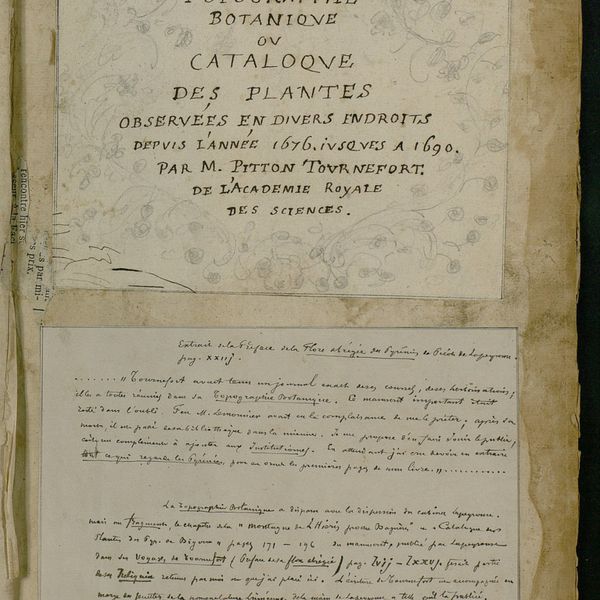 TOPOGRAPHIE
BOTANIQUE
OU
CATALOQUE
DES PLANTES
OBSERVÉES EN DIVERS ENDROITS
DEPUIS L'ANNÉE 1676. IUSQUES A 1690.
PAR M. PITTON TOURNEFORT.
DE L'ACADEMIE ROYALE
DES SCIENCES.
rencontre hier s
s par mi-
s prix.
Extrait de la Préface de la Flore abrégée des Pyrénées de Picot de Lapeyrouse.
pag. XXIIJ.
....... " Tournefort avait tenu un journal exact de ses courses, de ses herborisations;
il les a toutes réunies dans sa Topographie Botanique. Ce manuscrit important était
resté dans l'oubli. Feu M. Lemonnier avait eu la complaisance de me le prêter; après sa
mort, il a passé de sa bibliothèque dans la mienne. Je me propose d'en faire jouir le public,
comme complément à ajouter aux Institutiones. En attendant j'ai cru devoir en extraire
tout ce qui regarde les Pyrénées, pour en orner les premières pages de mon livre. "..........
La Topographie Botanique a disparu avec la dispersion du cabinet Lapeyrouse.
mais un fragment, le chapitre de la " montagne de L'Hiéris proche Bagnère " et " Catalogue des
Plantes des Pyr. de Bigorre " pages 171 - 196 du manuscrit, publié par Lapeyrouse
dans son Voyage de Tournefort (Préface de sa flore abrégée) pag. LVIJ - LXXV. faisait partie
des Reliquiæ retenus par moi et que j'ai placé ici. L'écriture de Tournefort est accompagnée en
marge des feuillets de la nomenclature Linnéenne de la main de Lapeyrouse